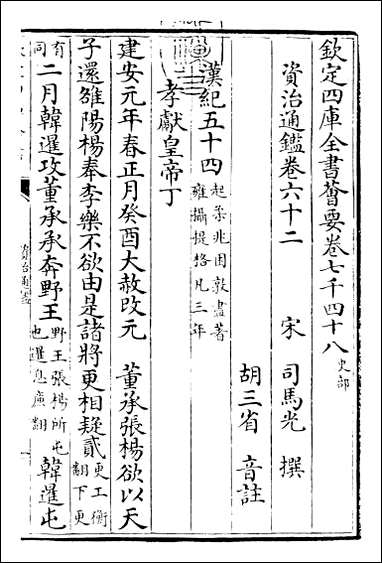 欽定四庫全書薈要卷七千四十八 史部
資治通鑑卷六十二 宋 司馬光 撰
胡三省 音註
漢紀五十四 起柔兆困敦盡著雍攝提格凡三年
孝獻皇帝丁
建安元年春正月癸酉大赦改元 董承張楊欲以天
子還雒陽楊奉李樂不欲由是諸將更相疑貳 更工衡翻下更
有同 二月韓暹攻董承承奔野王 野王張楊所屯也暹息廉翻 韓暹屯